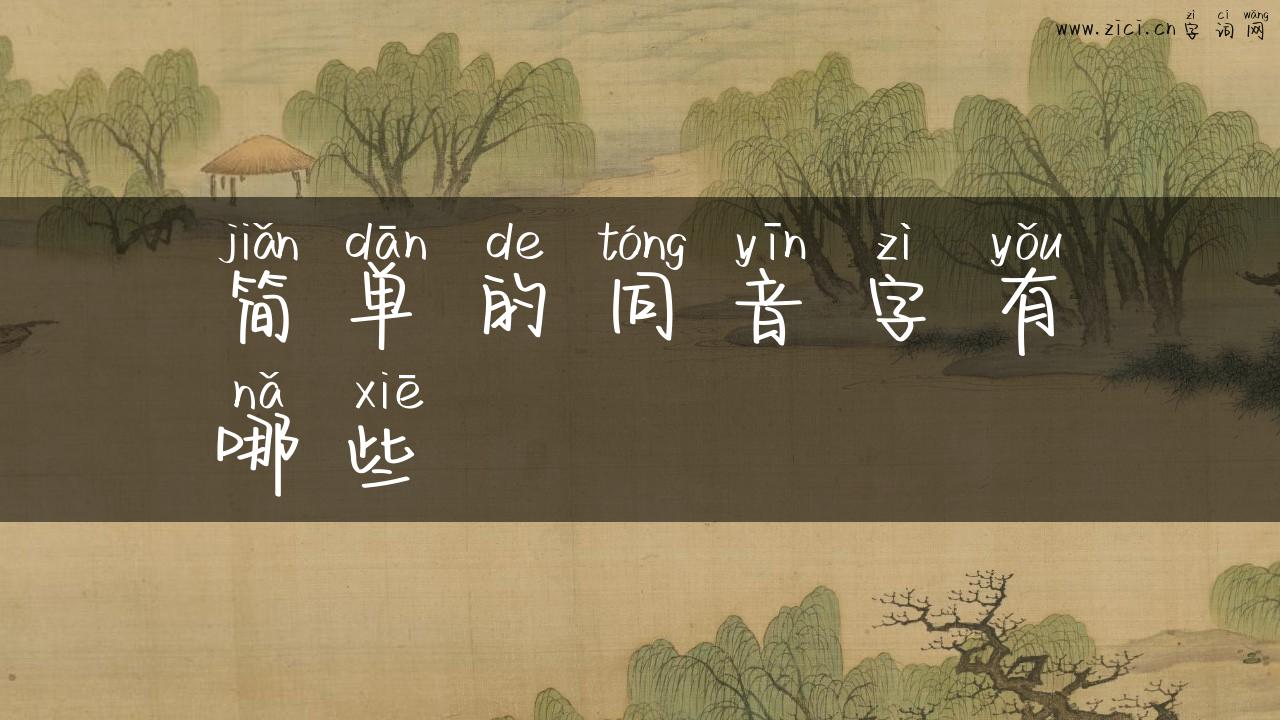 zì cí wǎng
www.zici.cn 字 词 网
jiǎn dān de tóng yīn zì yǒu
简 单 的 同 音 字 有
nǎ xiē
哪 些